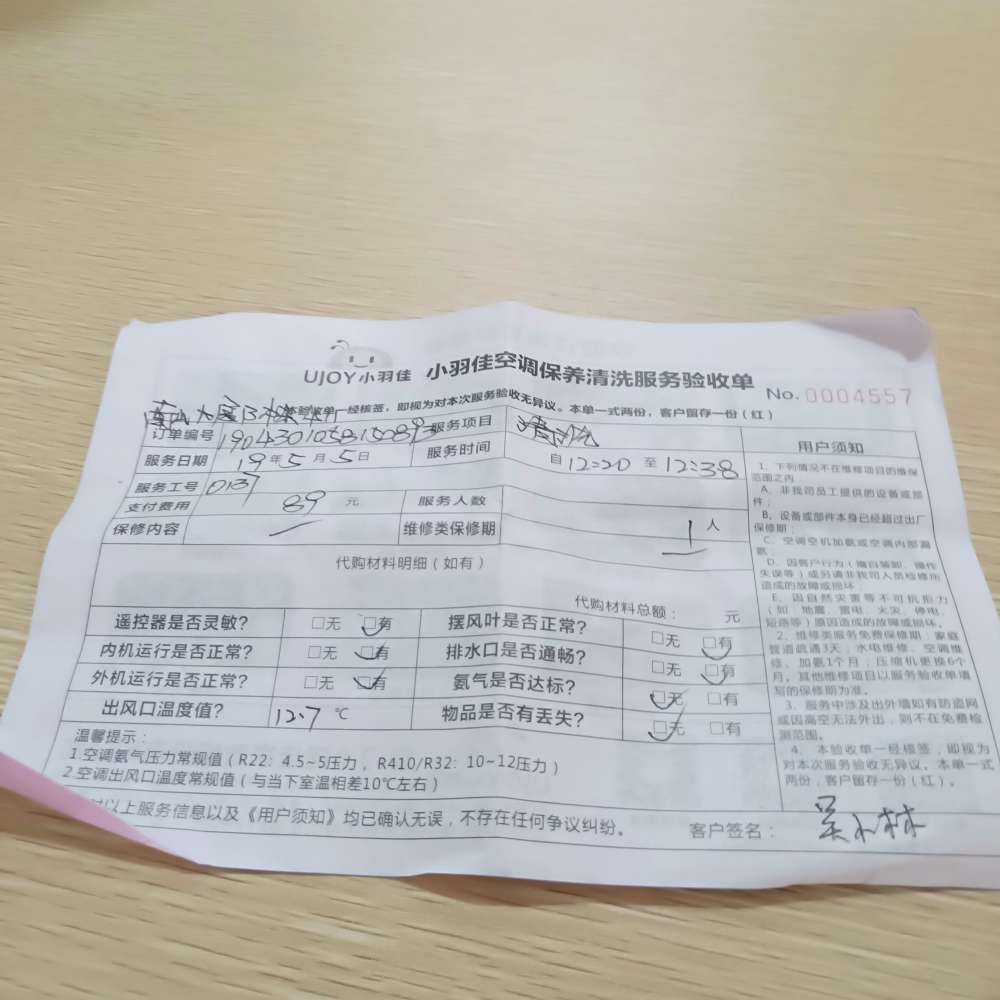 UJOY小羽佳 小羽佳空调保养清洗服务验收单 No. 0004557
本验收单一经核签，即视为对本次服务验收无异议。本单一式两份，客户留存一份（红）
订单编号 服务项目 清洗
服务日期 19年5月5日 服务时间 自12:20至12:38
服务工号 0137
支付费用 89 元 服务人数 1 人
保修内容 维修类保修期
代购材料明细（如有）
代购材料总额： 元
遥控器是否灵敏？ □无 □有 摆风叶是否正常？ □无 □有
内机运行是否正常？ □无 □有 排水口是否通畅？ □无 □有
外机运行是否正常？ □无 □有 氨气是否达标？ □无 □有
出风口温度值？ 12.7 ℃ 物品是否有丢失？ □无 □有
温馨提示：
1.空调氨气压力常规值（R22：4.5~5压力， R410/R32：10~12压力）
2.空调出风口温度常规值（与当下室温相差10℃左右）
对以上服务信息以及《用户须知》均已确认无误，不存在任何争议纠纷。 客户签名：
用户须知
1、下列情况不在维修项目的维保
范围之内：
A、非我司员工提供的设备或部
件；
B、设备或部件本身已经超过出厂
保修期；
C、空调空机加氨或空调内部漏
氨；
D、因客户行为（擅自装卸、操作
失误等）或另请非我司人员检修所
造成的故障或损坏；
E、因自然灾害等不可抗拒力
（如：地震、雷电、火灾、停电、
短路等）原因造成的故障或损坏。
2、维修类服务免费保修期：家庭
管道疏通3天；水电维修、空调维
修、加氨1个月；压缩机更换6个
月。其他维修项目以服务验收单填
写的保修期为准。
3、服务中涉及出外墙如有防盗网
或因高空无法外出，则不在免费检
测范围。
4、本验收单一经核签，即视为
对本次服务验收无异议。本单一式
两份，客户留存一份（红）。